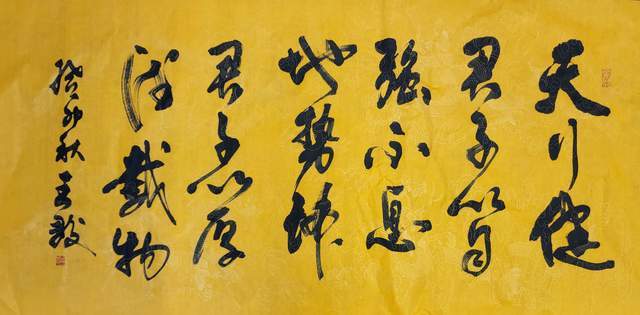 天行健
君子以自
強不息
地勢坤
君子以厚
德載物
癸卯秋王